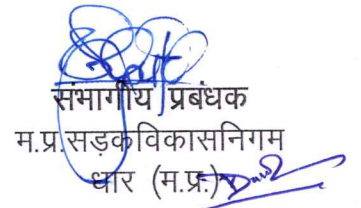 संभागीय प्रबंधक
म.प्र.सड़कविकासनिगम
धार (म.प्र.)